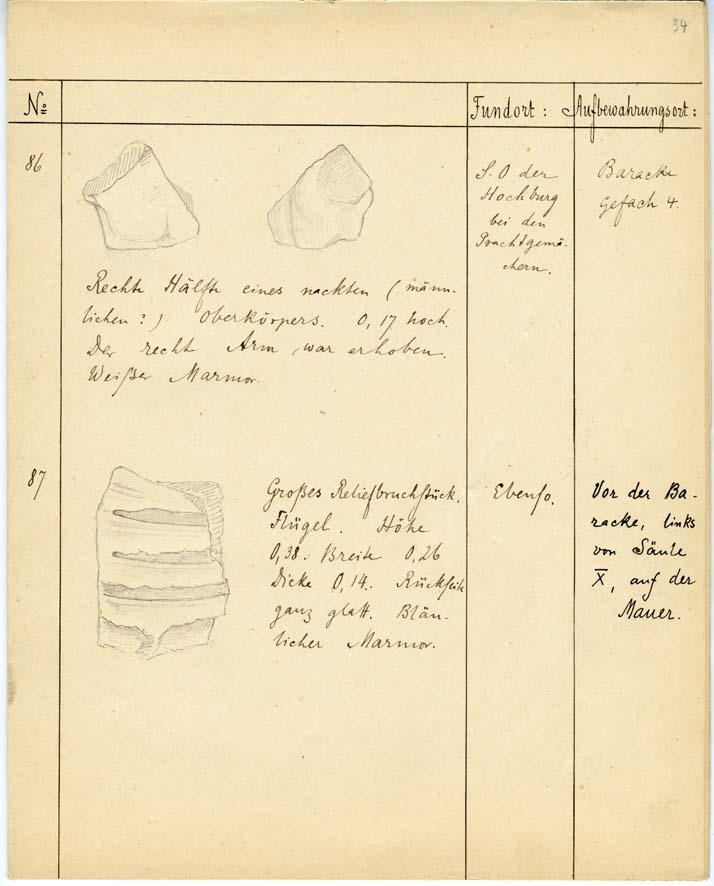 34
Nº
Fundort :
Aufbewahrungsort :
86
Rechte Hälfte eines nackten (männ-
lichen ?) Oberkörpers. 0,17 hoch.
Der rechte Arm war erhoben.
Weißer Marmor.
S. O der
Hochburg
bei den
Prachtgemä-
chern.
Baracke
Gefach 4.
87
Großes Reliefbruchstück.
Flügel. Höhe
0,38. Breite 0,26
Dicke 0,14. Rückseite
ganz glatt. Bläu-
licher Marmor.
Ebenso.
Vor der Ba-
racke, links
von Säule
X, auf der
Mauer.